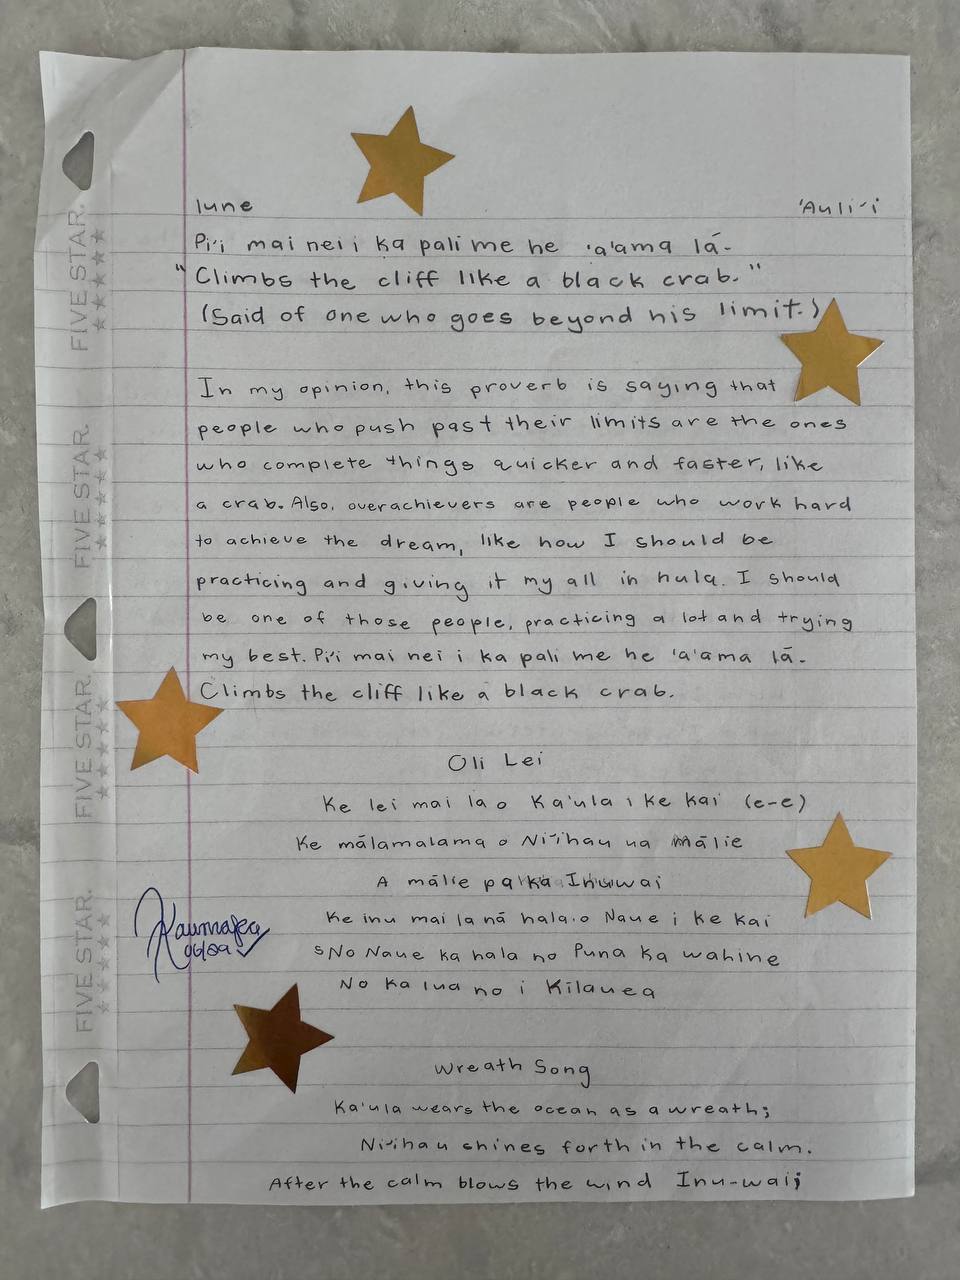 June 'Auli'i
Pi'i mai nei i ka pali me he 'a'ama lá-
"Climbs the cliff like a black crab."
(Said of one who goes beyond his limit.)
In my opinion, this proverb is saying that
people who push past their limits are the ones
who complete things quicker and faster, like
a crab. Also, overachievers are people who work hard
to achieve the dream, like how I should be
practicing and giving it my all in hula. I should
be one of those people, practicing a lot and trying
my best. Pi'i mai nei i ka pali me he 'a'ama lā.
Climbs the cliff like a black crab.
Oli Lei
Ke lei mai la o Ka'ula i ke kai (e-e)
Ke mālamalama o Ni'ihau ua mālie
A mālie pa ka Inuwai
Ke inu mai la nā hala o Naue i ke kai
No Naue ka hala no Puna ka wahine
No ka lua no i Kīlauea
06/09
Wreath Song
Ka'ula wears the ocean as a wreath;
Ni'ihau shines forth in the calm.
After the calm blows the wind Inu-wai;
FIVE STAR.
FIVE STAR.
FIVE STAR.
FIVE STAR.